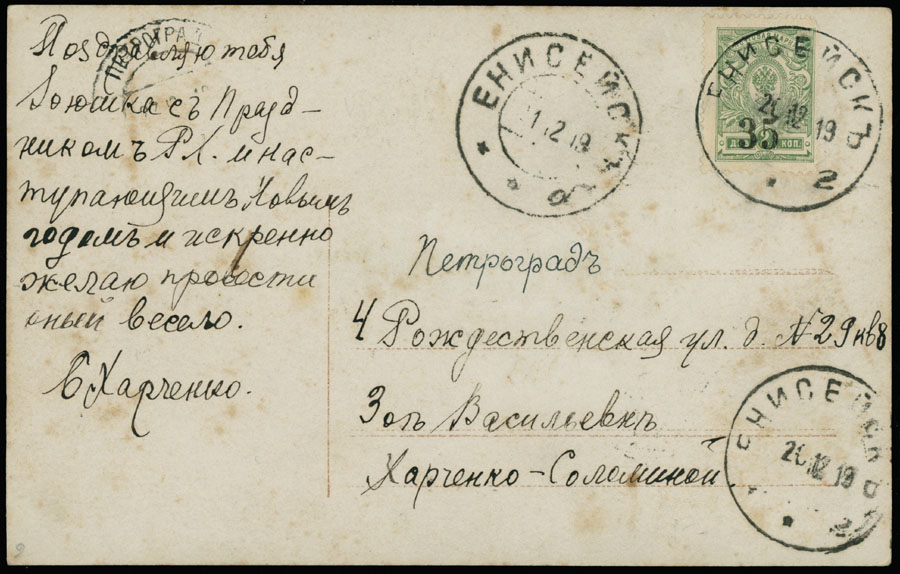 Поздравляю тебя
Зоюшка съ Празд-
никомъ Р.Х. и нас-
тупающимъ Новымъ
годомъ и искренно
желаю провести
оный весело.
Харченко.
ПЕТРОГРА
ЕНИСЕЙСКЪ
12 19
ЕНИСЕЙСКЪ
12 19
2
35
КОП.
Петроградъ
4 Рождественская ул. д. N 29 кв 8
Зоѣ Васильевнѣ
Харченко-Соломиной.
ЕНИСЕЙСКЪ
12 19
2